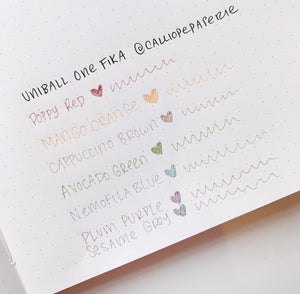 UNIBALL ONE FIKA @CALLIOPEPAPERIE
POPPY RED
MANGO ORANGE
CAPPUCCINO BROWN
AVOCADO GREEN
NEMOFILA BLUE
PLUM PURPLE
SESAME GRAY